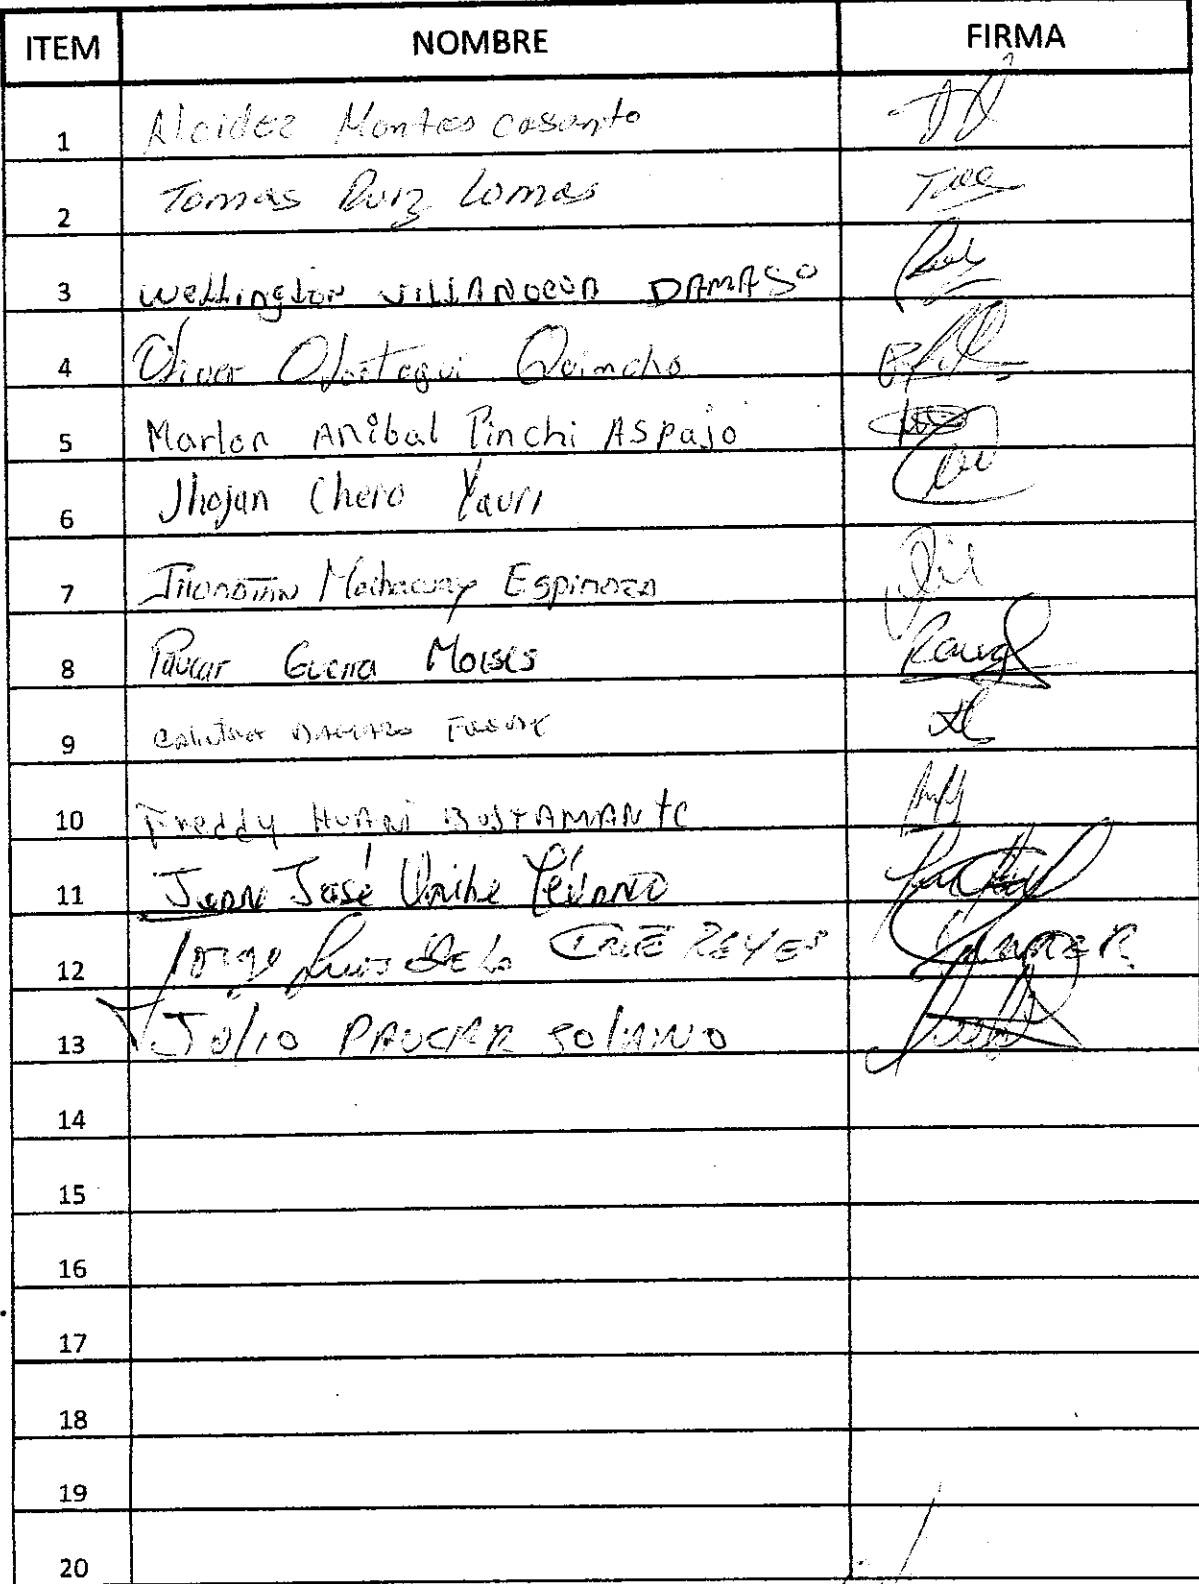 ITEM NOMBRE FIRMA
1 Alcidez Montes Casanto
2 Tomas Ruiz Lomas
3 Wellington VILLANUEVA DAMASO
4 Oliver Quimcho
5 Marlon Anibal Pinchi Aspajo
6 Jhojan Chero Yauri
7 Jhonatan Machacuay Espinoza
8 Paucar Guerra Moises
9
10 Freddy HUARI BUSTAMANTE
11 Juan José Uribe Tévano
12 Jorge Luis De La CRUZ REYES
13 Julio PAUCAR SOLANO
14
15
16
17
18
19
20